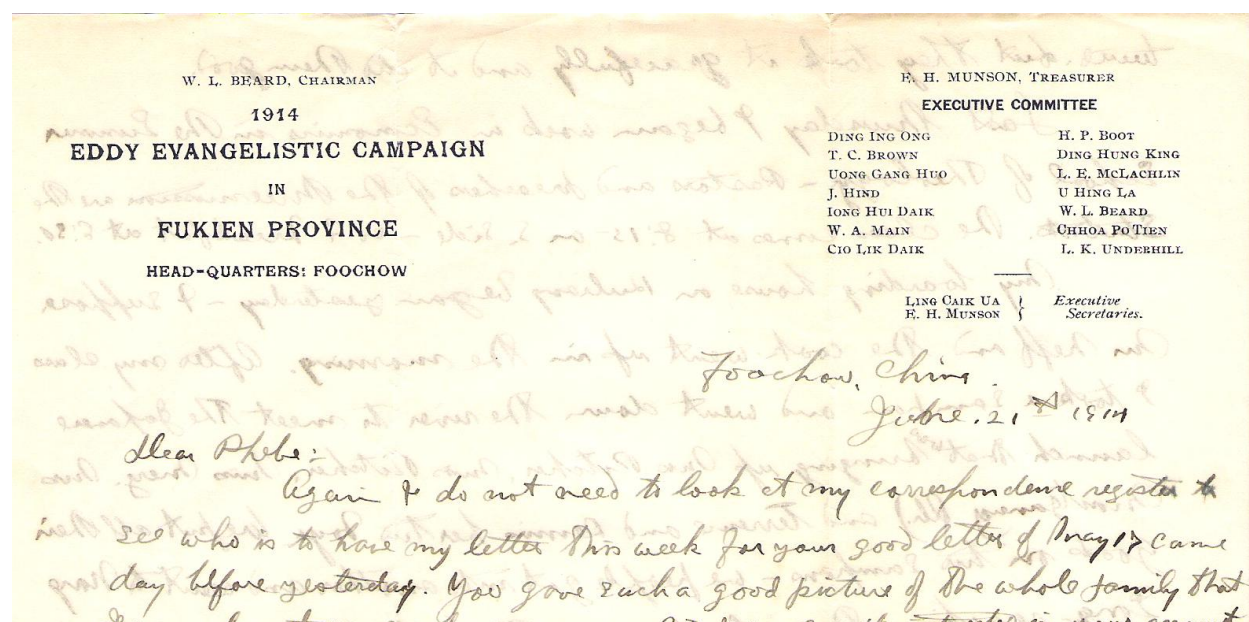 W. L. BEARD, CHAIRMAN
1914
EDDY EVANGELISTIC CAMPAIGN
IN
FUKIEN PROVINCE
HEAD-QUARTERS: FOOCHOW
E. H. MUNSON, TREASURER
EXECUTIVE COMMITTEE
DING ING ONG
T. C. BROWN
UONG GANG HUO
J. HIND
IONG HUI DAIK
W. A. MAIN
CIO LIK DAIK
H. P. BOOT
DING HUNG KING
L. E. MCLACHLIN
U HING LA
W. L. BEARD
CHHOA PO TIEN
L. K. UNDERHILL
LING CAIK UA
E. H. MUNSON
} Executive
Secretaries.
Foochow, China.
June. 21st 1914
Dear Phebe:
Again I do not need to look at my correspondence register to
see who is to have my letter this week for your good letter of May 17 came
day before yesterday. You gave such a good picture of the whole family that